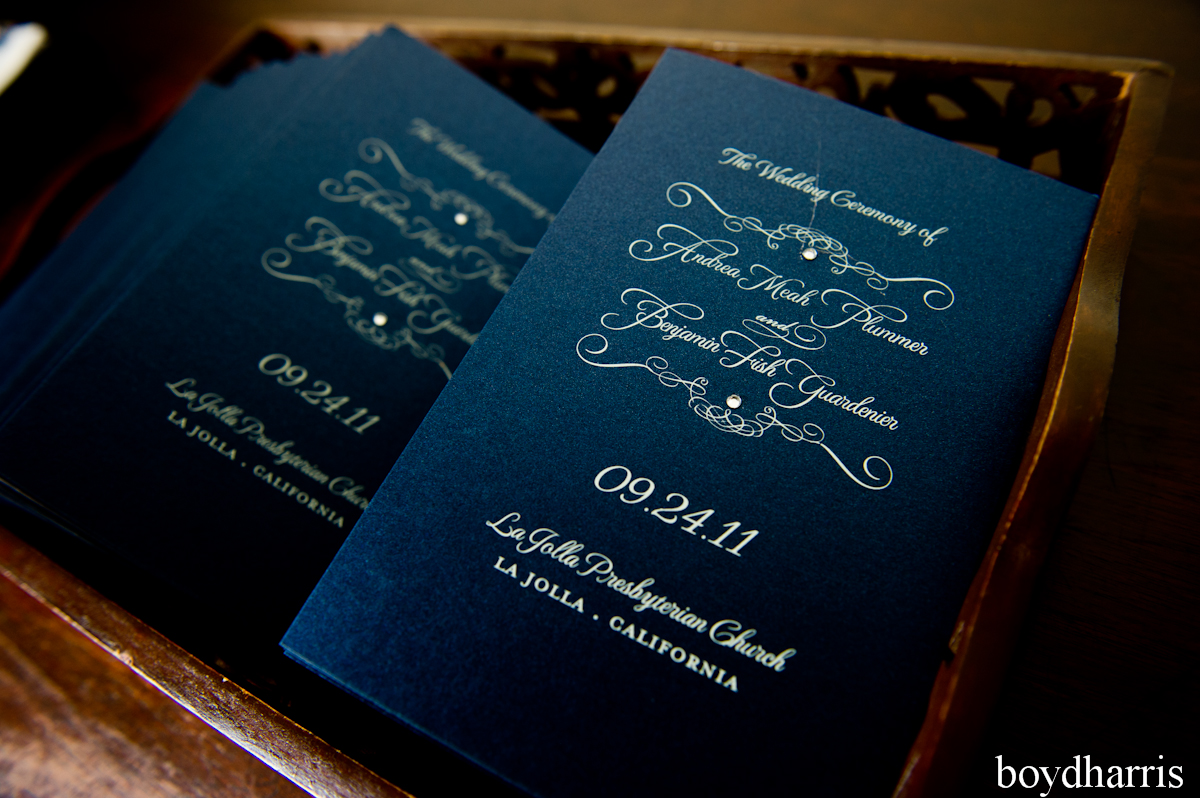 The Wedding Ceremony of
Andrea Meah Plummer
and
Benjamin Fish Guardenier
09.24.11
La Jolla Presbyterian Church
LA JOLLA . CALIFORNIA
The Wedding Ceremony
Andrea Meah
and
Benjamin Fish
09.24.11
La Jolla Presbyterian
LA JOLLA . CALIFORNIA
boydharris